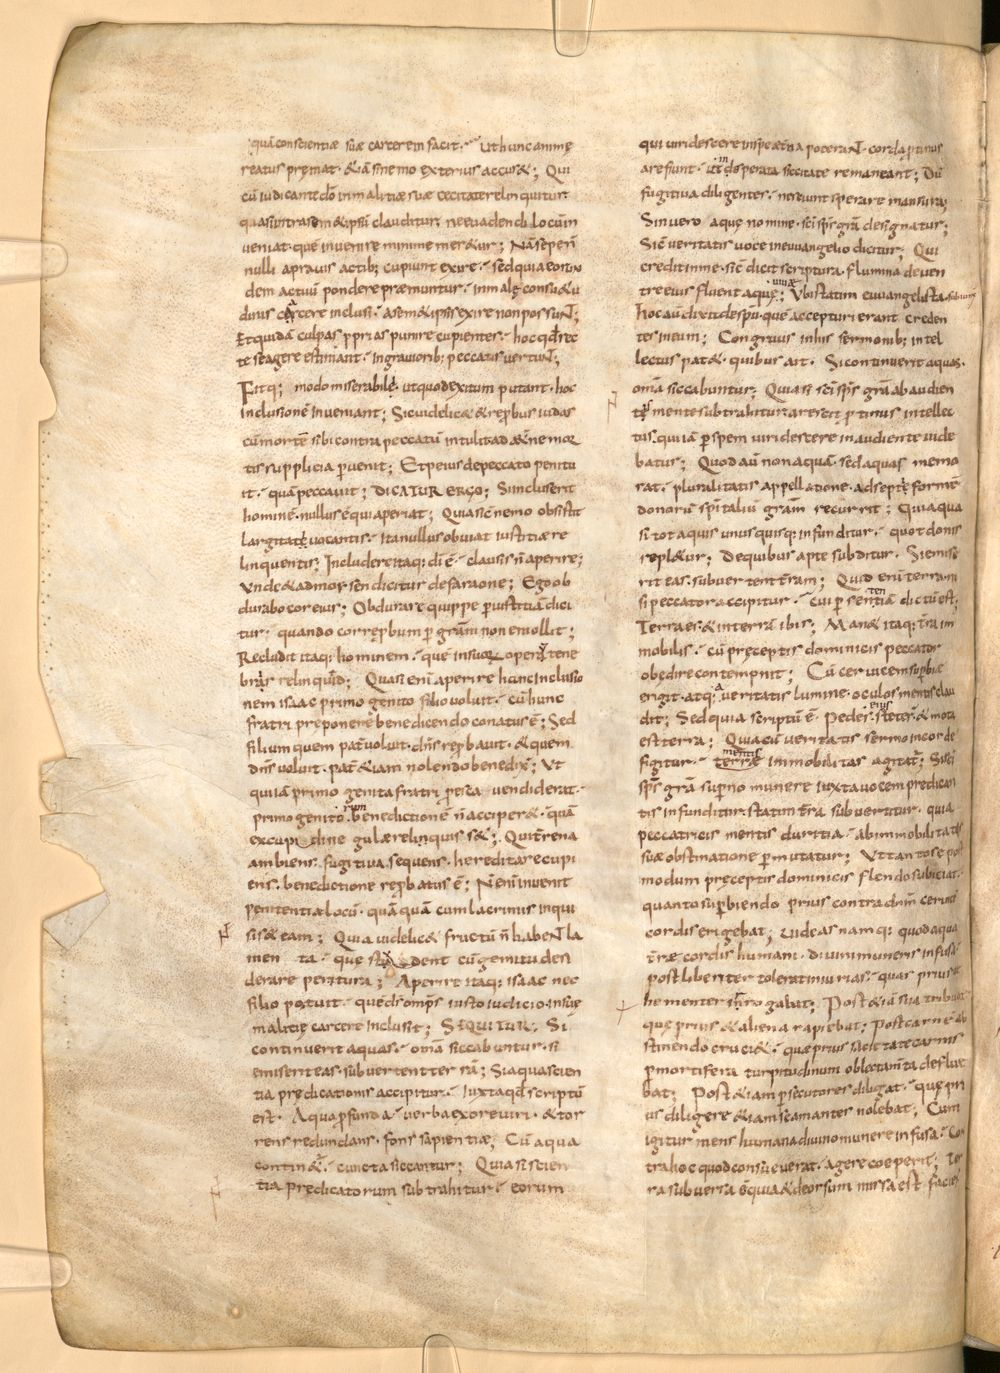 quā conscientiæ suæ carcerem facit. Ut hunc animę
reatus pręmat. & iā si nemo exterius accus&; Qui
cū iudicante dō in malitiæ suæ cecitate relinquitur
quasi intra sem&ipsū clauditur; ne euadendi locum
ueniat. que inuenire minime mer&ur; Nā sepe nñ
nulli a prauis actib; cupiunt exire. sed quia eorun
dem actuū pondere præmuntur. in malę consu&u
dinis carcere inclusi. a sem&ipsis exire non possunt;
Et quidā culpas p̱prias punire cupientes. hoc qđ rec
te se agere estimant. in grauiorib; peccatis uertunt;
Fitq; modo miserabile. ut quod exitum putant. hoc
inclusionē inueniant; Sic uidelic& & rep̱bus iudas
cū mortē sibi contra peccatū intulit ad æternę mor
tis supplicia ꝑuenit; Et peius de peccato penitu
it. quā peccauit; DICATUR ERGO; Si incluserit
hominē. nullus ē qui aperiat; Quia sic nemo obsistit
largitate uocantis. ita nullus obuiat iustitiæ re
linquentis; Includere itaq; dī ē. clausis ñ aperire;
Unde & ad mosen dicitur de faraone; Ego ob
durabo cor eius; Obdurare quippe ꝑ iustitiā dici
tur. quando cor rep̱bum ꝑ gr̄am non emollit;
Recludit itaq; hominem. que in suor operū tene
bras relinquid; Quasi enī aperire hanc inclusio
nem isaac primo genito filio uoluit. cū hunc
fratri preponere benedicendo conatus ē; Sed
filium quem pat̄ uoluit. dn̄s rep̱bauit. & quem
dn̄s uoluit. pat̄ & iam nolendo benedix̄; Ut
qui iam primogenita fratri ꝑ esca uendiderat.
primogenitorum benedictionē ñ acciper&. quā
ex cupidine gulæ relinquiss&; Qui t̄rena
ambiens. fugitiua sequens. hereditare cupi
ens. benedictione rep̱batus ē; N̄ enī inuenit
penitentiæ locū. quā quā cum lacrimis inqui
siss& eam; Quia uidelic& fructū ñ habent la
menta. que student cū gemitu desi
derare peritura; Aperire itaq; isaac nec
filio potuit. que d̄s omp̄s iusto iudicio in suę
malitię carcere inclusit; SEQUITUR; Si
continuerit aquas. omā siccabuntur. si
emiserit eas. subuertent terrā; Si aqua scien
tia predicationis accipitur. iuxta qđ scriptū
est. Aqua p̱funda. uerba ex ore uiri. & tor
rens redundans. fons sapientiæ; Cū aqua
contin&ur. cuncta siccantur; Quia si scien
tia predicatorum subtrahitur. eorum
qui uiridescere in spe æt̄na poterant. corda p̱tinus
arefiunt. ut in desperata siccitate remaneant; Dū
fugitiua diligenter. nesciunt sperare mansura;
Sin uero aquę nomine. sc̄i sp̄s gr̄a designatur;
Sic̄ ueritatis uoce in euuangelio dicitur; Qui
credit in me. sic̄ dicit scriptura. flumina de uen
tre eius fluent aquę uiuæ; Ubi statim euuangelista subiunx
hoc aū dixit de sp̄u. que accepturi erant creden
tes in eum; Congruus in his sermonib; intel
lectus pat&. quibus ait. Si continuerit aquas.
omā siccabuntur; Quia si sc̄i sp̄s gr̄a ab audien
tis mente subtrahitur. arescit p̱tinus intellec
tus. qui iā ꝑ spem uiridescere in audiente uide
batur; Quod aū non aquā. sed aquas memo
rat. pluralitatis appellatione. ad septē formē
donorū sp̄italiū gr̄am recurrit; Quia qua
si tot aquis unusquisq; infunditur. quot donis
repl&ur; De quibus apte subditur. Si emise
rit eas. subuertent t̄ram; Quid enī terram
si peccator accipitur. cui ꝑ sententiā dictū est;
Terra es. & in terrā ibis; Man& itaq; t̄ra im
mobilis. cū pręceptis dominicis peccator
obedire contempnit; Cū ceruicem supbiæ
erigit. atq; a ueritatis lumine. oculos mentis clau
dit; Sed quia scriptū ē. Pedes eius stet̄. & mota
est terra; Quia cū ueritatis sermo in corde
figitur. mentis terræ immobilitas agitat̄; Si sc̄i
sp̄s gr̄a suꝑno munere iuxta uocem predican
tis infunditur. statim t̄ra subuertitur. quia
peccatricis mentis duritia. ab immobilitate
suæ obstinatione ꝑmutatur; Ut tanto se post
modum pręceptis dominicis flendo subiciat.
quanto suꝑbiendo prius contra dn̄m ceruices
cordis erigebat; Uideas namq; quod aqua
t̄ræ cordis humani. diuini muneris infusa
post libenter toleret iniurias. quas prius ue
hementer irrogabat; Post & iā sua tribuat
quę prius & aliena rapiebat; Post carnē ab
stinendo cruci&. quæ prius sacietate carnis
ꝑ mortifera turpitudinum oblectam̄ta deflue
bat; Post & iam ꝑsecutores diligat. quę pri
us diligere & iam se amantes nolebat; Cum
igitur mens humana diuino munere infusa. con
tra hoc quod consueuerat. agere coeperit; Ter
ra subuersa ē. quia & deorsum missa est facies